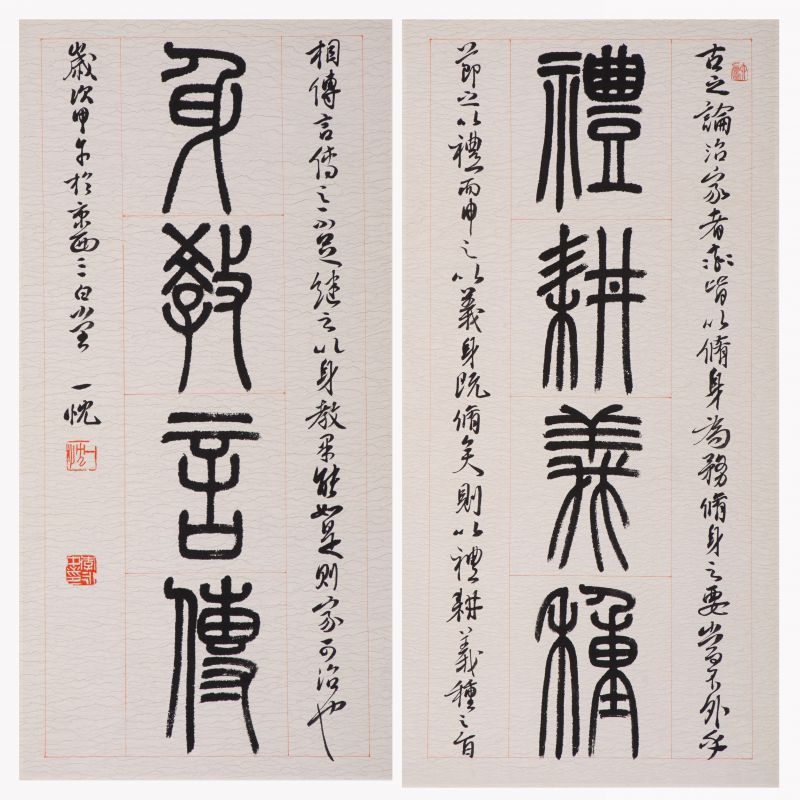 古之論治家者亦皆以脩身為務脩身之要當不外乎
禮耕義種
節之以禮而申之以義身既脩矣則以禮耕義種之旨
相傳言傳之不足繼之以身教果能如是則家可治也
身教言傳
歲次甲午於京西三白堂 一忱